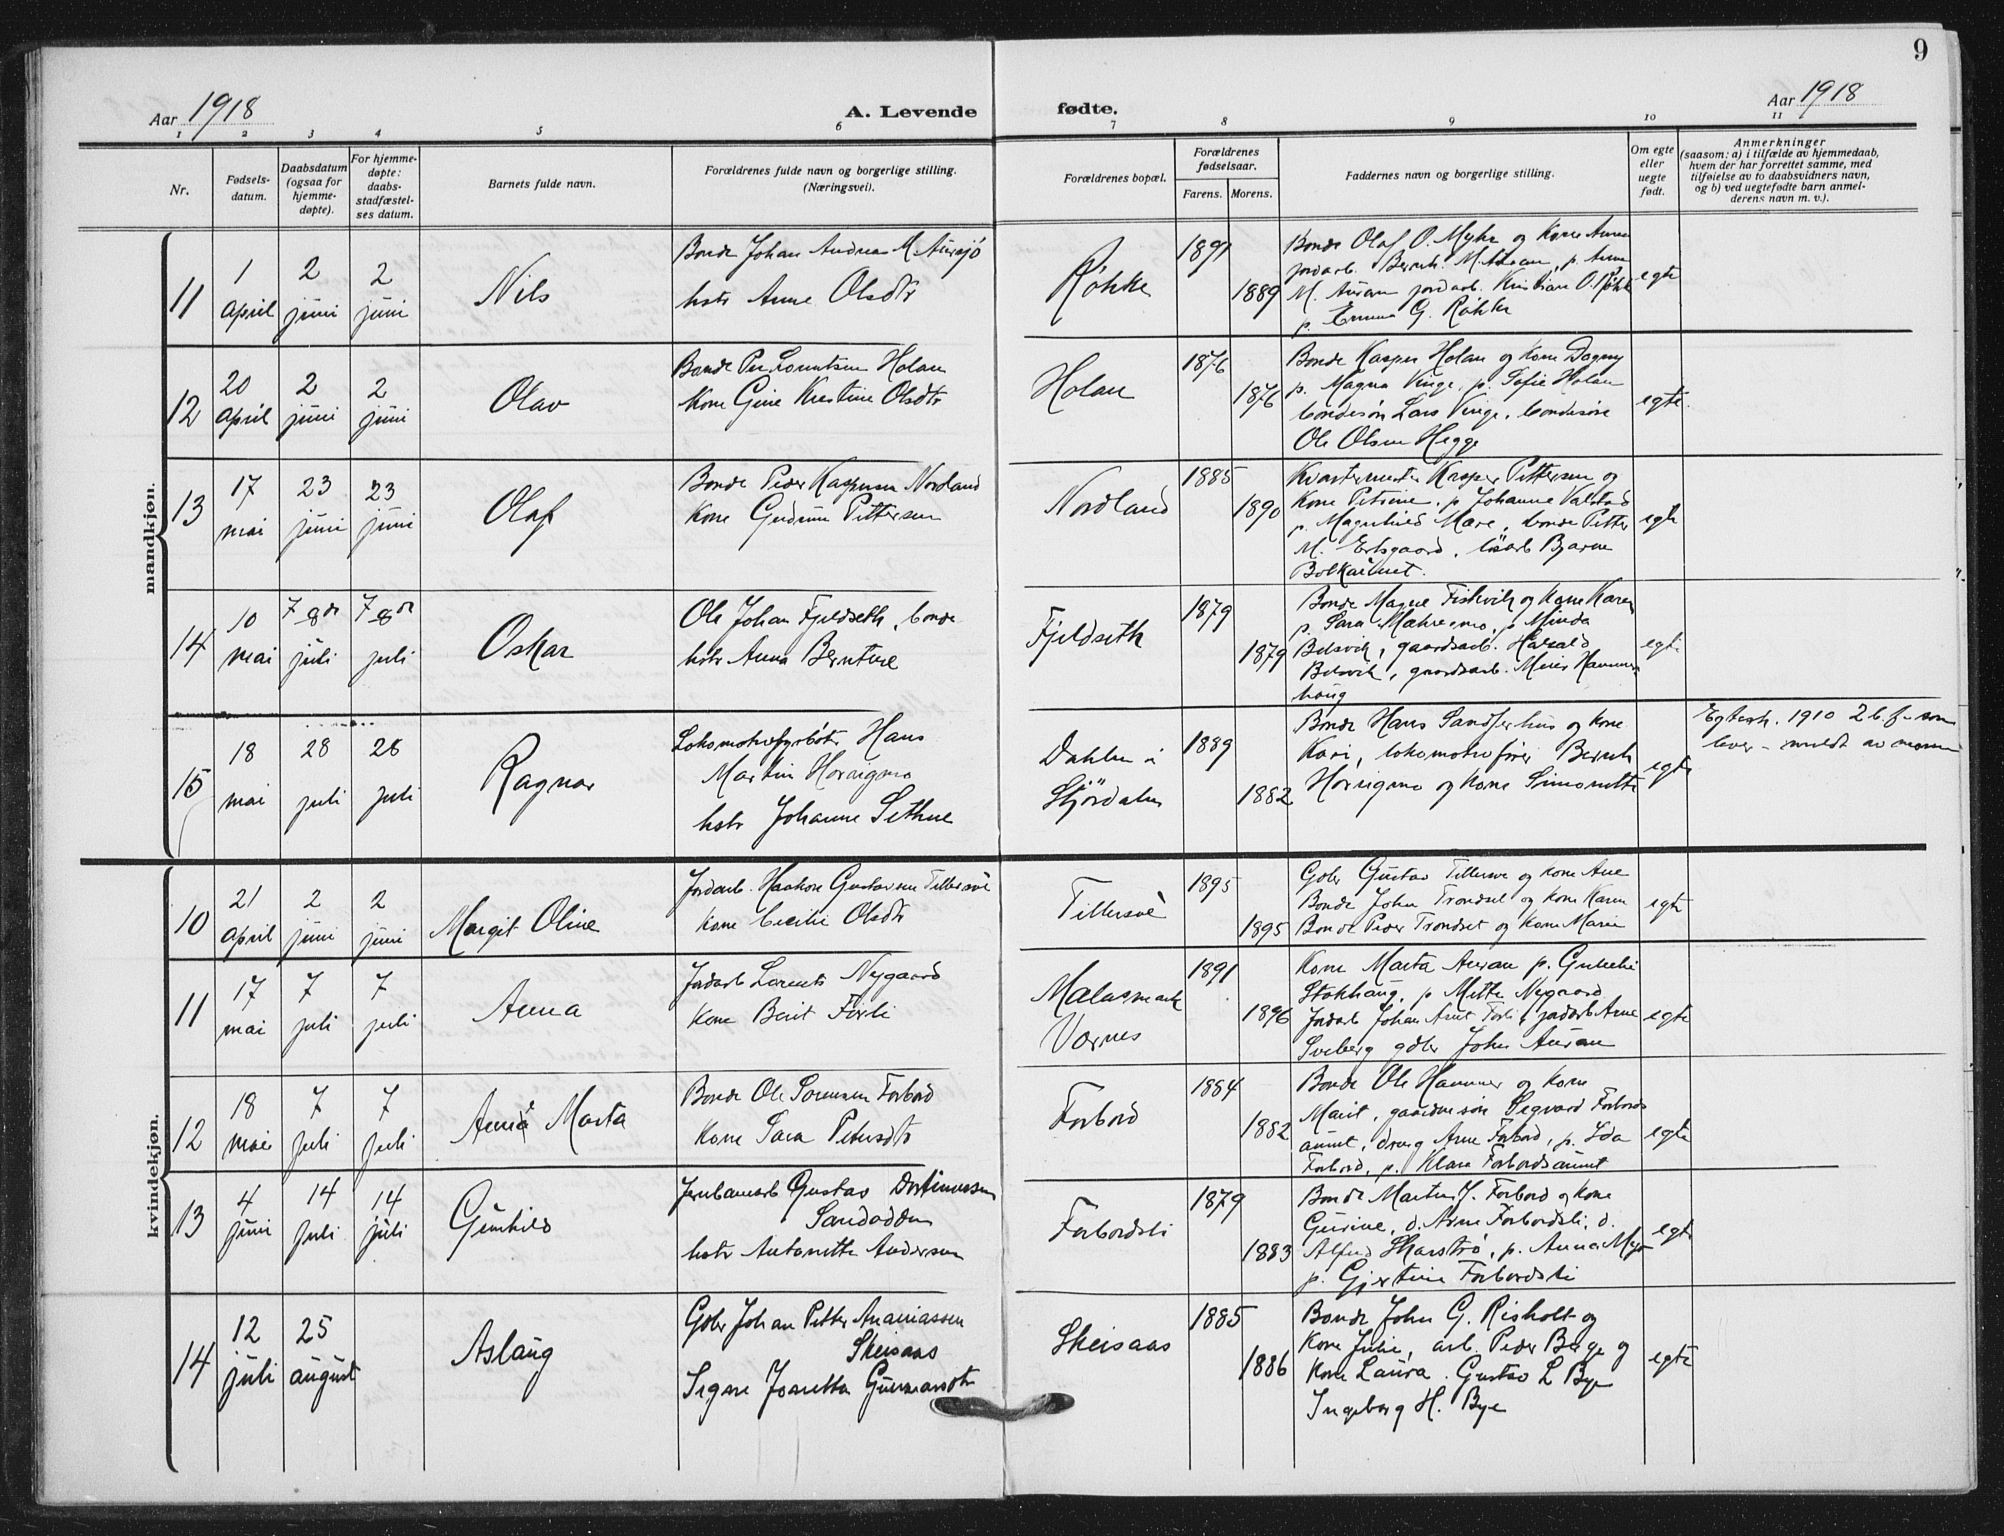 9
Aar 1918
A. Levende fødte.
Aar 1918
1 2 3 4 5 6 7 8 9 10 11
Nr.
Fødsels-
datum.
Daabsdatum
(ogsaa for
hjemme-
døpte).
For hjemme-
døpte:
daabs-
stadfæstel-
ses datum.
Barnets fulde navn.
Forældrenes fulde navn og borgerlige stilling.
(Næringsvei).
Forældrenes bopæl.
Forældrenes
fødselsaar.
Farens. Morens.
Faddernes navn og borgerlige stilling.
Om egte
eller
uegte
født.
Anmerkninger
(saasom: a) i tilfælde av hjemmedaab,
hvem der har forrettet samme, med
tilføielse av to daabsvidners navn,
og b) ved uegtefødte barn anmel-
derens navn m. v.).
mandkjøn.
11
1
april
2
juni
2
juni
Nils
Bonde Johan Andreas M. Aursjö
hstr Anne Olsdtr
Røkke
1891
1889
Bonde Olaf O. Myhr og Kone
jordarb. Bernh. M. p. Anne
M. Auran jordarb. Kristian O. Røkke
p. Emma G. Røkke
egte
12
20
april
2
juni
2
juni
Olav
Bonde Per Lorentsen Holan
Kone Gine Kristine Olsdtr
Holan
1876
1876
Bonde Kasper Holan og Kone Dagny
p. Magna Vinge, p. Sofie Holan
bondesøn Lars Vinge, bondesøn
Ole Olsen Hegge
egte.
13
17
mai
23
juni
23
juni
Olaf
Bonde Peder Kaspersen Nordland
Kone Gudrun Pettersen
Nordland
1885
1890
Kvartermester Kasper Pettersen og
Kone Petrine, p Johanne Valstad
p. Magnhild Mære, bonde Petter
M. Ertsgaard, løsarb Bjarne
egte
14
10
mai
7 8de
juli
7 8de
juli
Oskar
Ole Johan Fjeldseth, bonde
hstr Anna Berntine
Fjeldseth
1879
1879
Bonde Magne Fiskvik og Kone Karen
p. Sara Mæhresmo, p Minda
Belsvik, gaardsarb. Harald
Belsvik, gaardsarb. Meier Hammer-
haug
egte
15
18
mai
28
juli
28
juli
Ragnar
Lokomotivfyrbøter Hans
Martin
hstr Johanne Sethne
Dahlen i
Stjördalen
1889
1882
Bonde Hans Sandferhus og kone
Kari, lokomotivfører Bernh
og Kone Simonette
egte
Egtesk. 1910 2 b. f. som
lever – meldt av moren
kvindekjøn.
10
21
april
2
juni
2
juni
Margit Oline
Jordarb. Haakon Gustavsen Tillersve
Kone Cecilie Olsdtr
Tillersve
1895
1895
Gbr Gustav Tillersve og Kone Ane
Bonde John Trondset og Kone Karen
Bonde Peder Trondset og Kone Marie
egte
11
17
mai
7
juli
7
juli
Anna
Jordarb Lorents Nygaard
Kone Berit Forli
Værnes
1891
1896
Kone Marta Auran p. Gunelie
Stokhaug, p Mette Nygaard
Jordarb Johan Arnt Forli, jordarb Arne
Sveberg gdbr John Auran
egte
12
18
mai
7
juli
7
juli
Anna Marta
Bonde Ole Sørensen Forbord
Kone Sara Petersdtr
Forbord
1884
1882
Bonde Ole Hammer og Kone
Marit, gaardmsøn Segvard Forbords
aunet, dreng Arne Forbord, p. Ida
Forbord, p. Klara Forbordsaunet
egte
13
4
juni
14
juli
14
juli
Gunhild
Jernbanearb Gustav
Sandodden
hstr Antonette Andersen
Forbordsli
1879
1883
Bonde Martin J. Forbord og kone
Gurine, d. Arne Forbordsli, d.
Alfred Skarstrø, p. Anna Myr
p. Gjertine Forbordsli
egte
14
12
juli
25
august
Aslaug
Gbr Johan Petter Ananiassen
Skeisaas
Signe Josetta Gunnarsdtr
Skeisaas
1885
1886
Bonde John G. Risholt og
Kone Julie, arb. Peder Berge og
Kone Laura. Gustav L Bye
Ingeborg H. Bye
egte